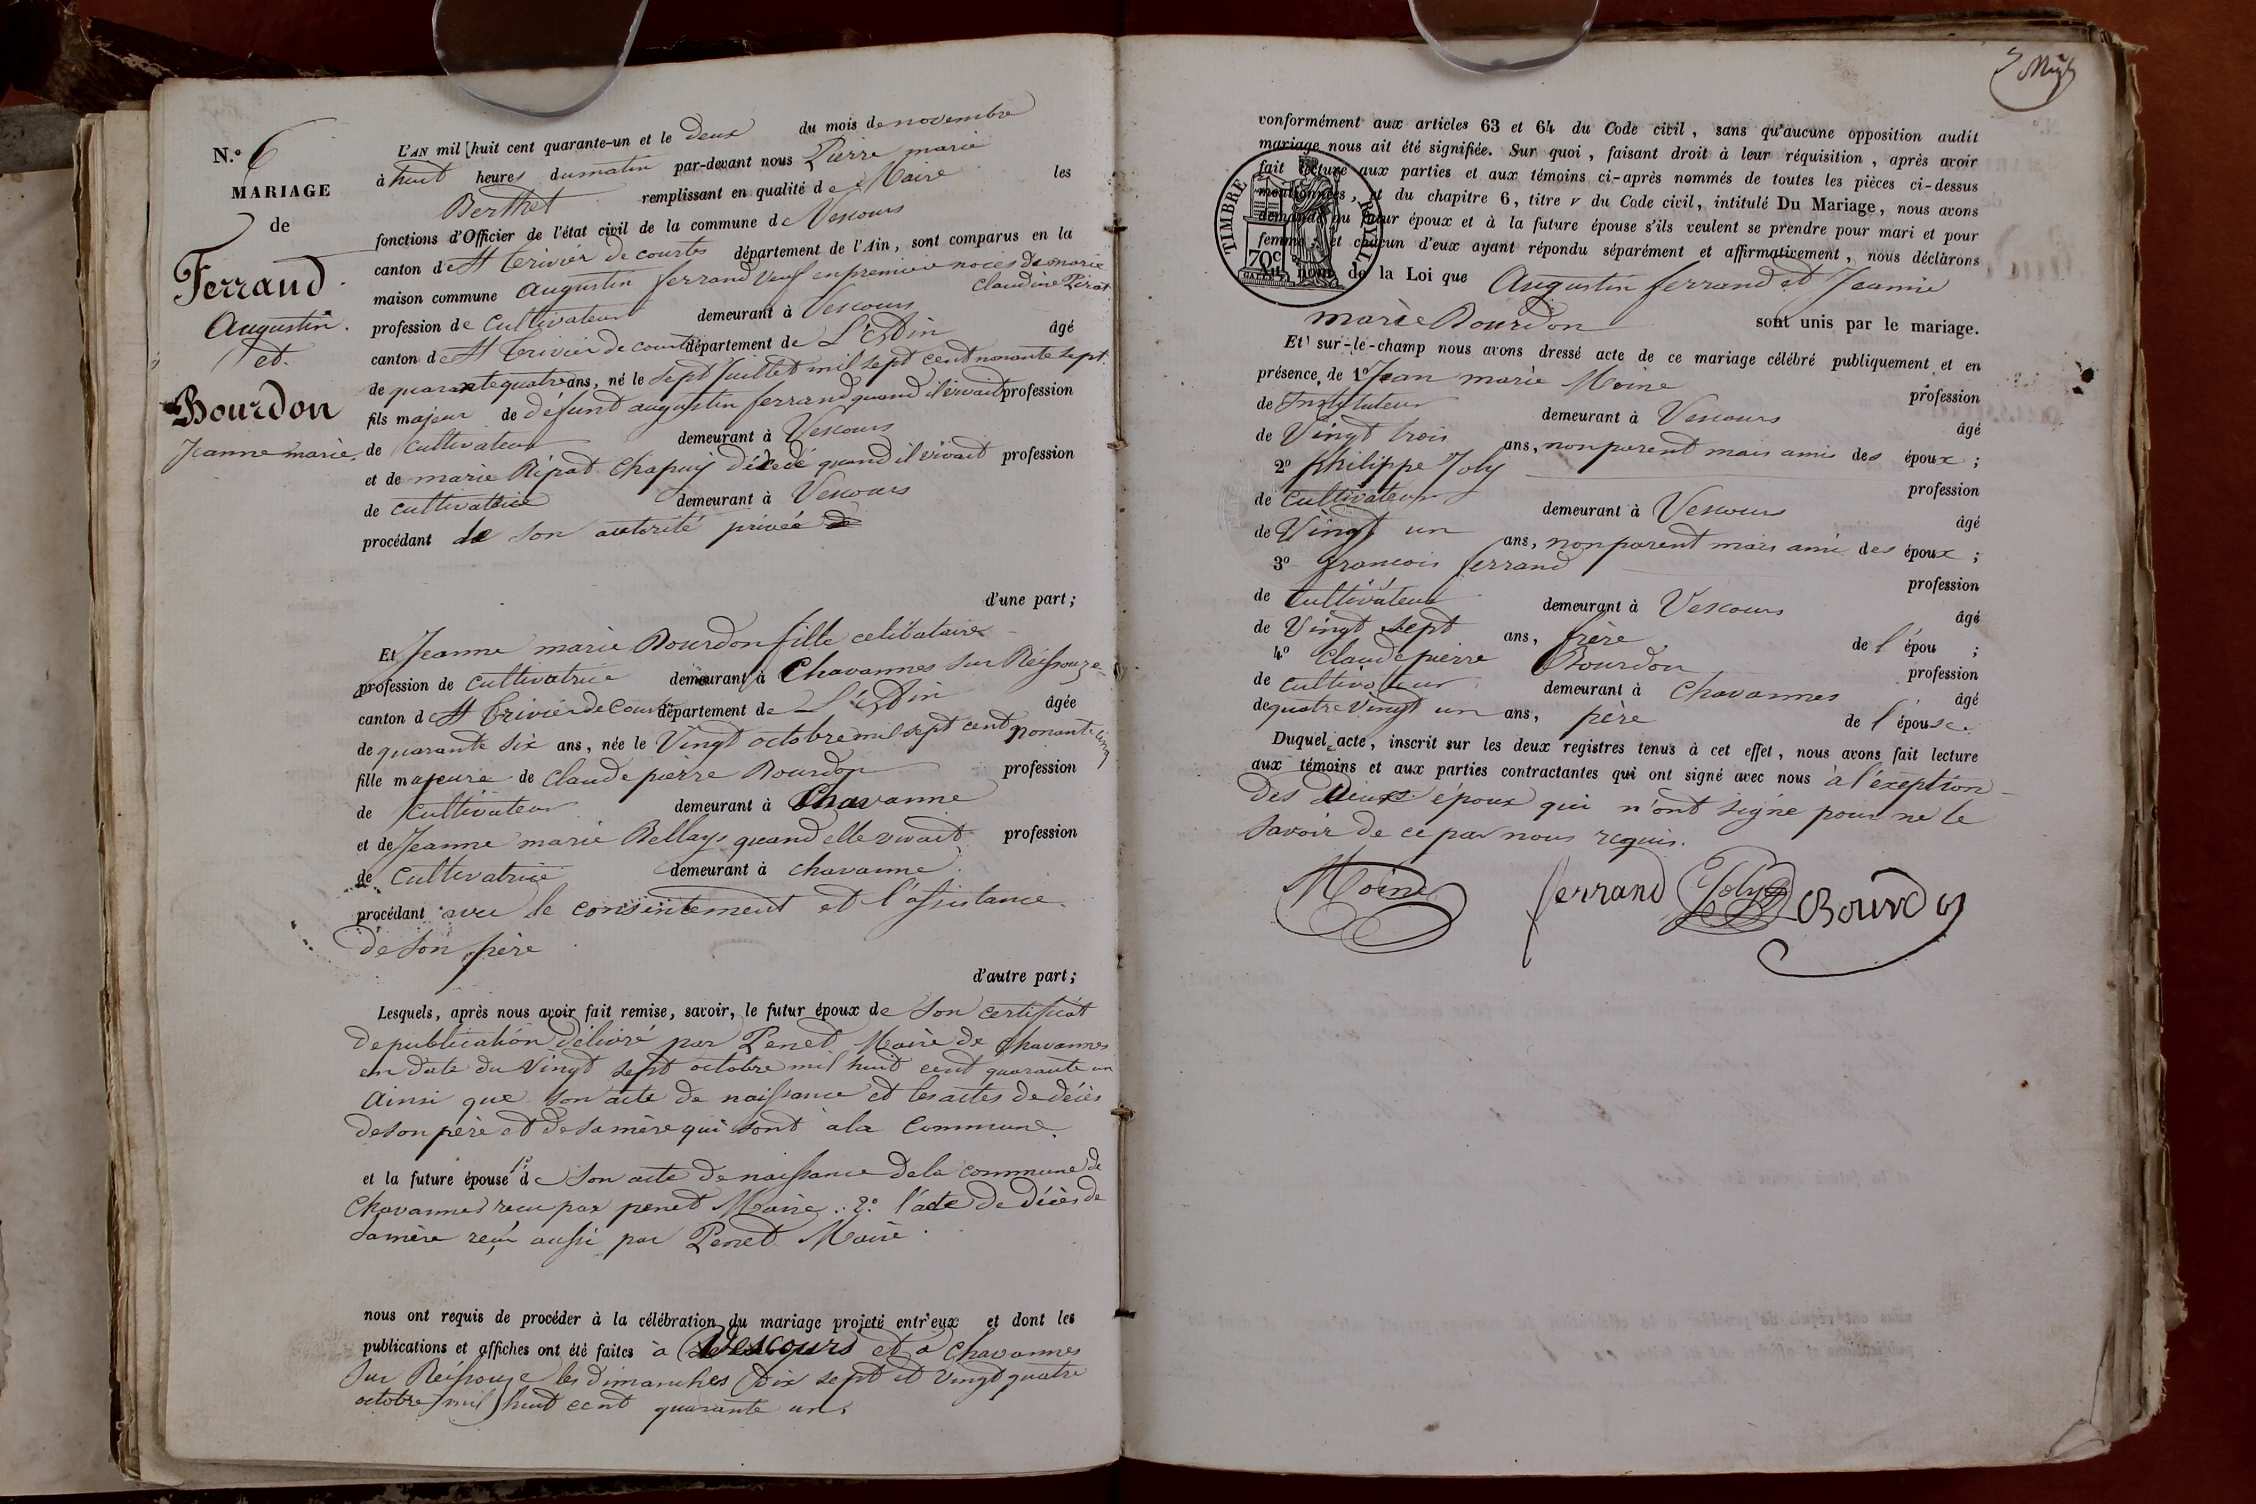 N.º 6
MARIAGE
de
Ferrand
Augustin.
et
Bourdon
Jeanne marie.
L'AN mil huit cent quarante-un et le deux du mois de novembre
à huit heures du matin par-devant nous Pierre marie
Berthet remplissant en qualité de Maire les
fonctions d'Officier de l'état civil de la commune de Vescours
canton de St Trivier de courtes département de l'Ain, sont comparus en la
maison commune Augustin ferrand Veuf en premiere noces de marie
Claudine
profession de Cultivateur demeurant à Vescours
canton de St Trivier de courtes département de L'Ain âgé
de quarante quatre ans, né le sept Juillet mil sept cent nonante sept
fils majeur de défunt augustin ferrand quand il vivait profession
de Cultivateur demeurant à Vescours
et de marie Répat Chapuy décédé quand il vivait profession
de cultivatrice demeurant à Vescours
procédant de son autorité privée
d'une part;
Et Jeanne marie Bourdon fille celibataire
profession de cultivatrice demeurant à Chavannes sur Reissouze
canton de St Trivier de Courtes département de L'Ain âgée
de quarante six ans, née le Vingt octobre mil sept cent nonante cinq
fille majeure de Claude pierre Bourdon profession
de Cultivateur demeurant à Chavanne
et de Jeanne marie Bellay quand elle vivait profession
de Cultivatrice demeurant à chavanne
procédant avec le consentement et l'assistance
de son père
d'autre part;
Lesquels, après nous avoir fait remise, savoir, le futur époux de son certificat
de publication délivré par Penet Maire de Chavannes
en date du Vingt sept octobre mil huit cent quarante un
Ainsi que son acte de naissance et les actes de décès
de son père et de sa mère qui sont à la Commune.
et la future épouse 1º de son acte de naissance de la commune de
Chavannes recu par penet Maire. 2º l'acte de décès de
sa mère reçu aussi par Penet Maire.
nous ont requis de procéder à la célébration du mariage projeté entr'eux et dont les
publications et affiches ont été faites à Vescours et a Chavannes
sur Reissouze les dimanches dix sept et vingt quatre
octobre mil huit cent quarante un.
conformément aux articles 63 et 64 du Code civil, sans qu'aucune opposition audit
mariage nous ait été signifiée. Sur quoi, faisant droit à leur réquisition, après avoir
fait lecture aux parties et aux témoins ci-après nommés de toutes les pièces ci-dessus
mentionnées, et du chapitre 6, titre v du Code civil, intitulé Du Mariage, nous avons
demandé au futur époux et à la future épouse s'ils veulent se prendre pour mari et pour
femme; et chacun d'eux ayant répondu séparément et affirmativement, nous déclarons
Au nom de la Loi que Augustin ferrand et Jeanne
marie Bourdon sont unis par le mariage.
TIMBRE ROYAL
70c
Et sur-le-champ nous avons dressé acte de ce mariage célébré publiquement et en
présence de 1º Jean marie Moine profession
de Instituteur demeurant à Vescours âgé
de Vingt trois ans, non parent mais ami des époux;
2º Philippe Joly profession
de Cultivateur demeurant à Vescours âgé
de Vingt un ans, non parent mais ami des époux;
3º francois ferrand profession
de Cultivateur demeurant à Vescours âgé
de Vingt sept ans, frère de l'épou;
4º Claude pierre Bourdon profession
de cultivateur demeurant à Chavannes âgé
de quatre vingt un ans, père de l'épouse.
Duquel acte, inscrit sur les deux registres tenus à cet effet, nous avons fait lecture
aux témoins et aux parties contractantes qui ont signé avec nous à l'exeption
des deux époux qui n'ont signé pour ne le
savoir de ce par nous requis.
Moine ferrand Joly Bourdon